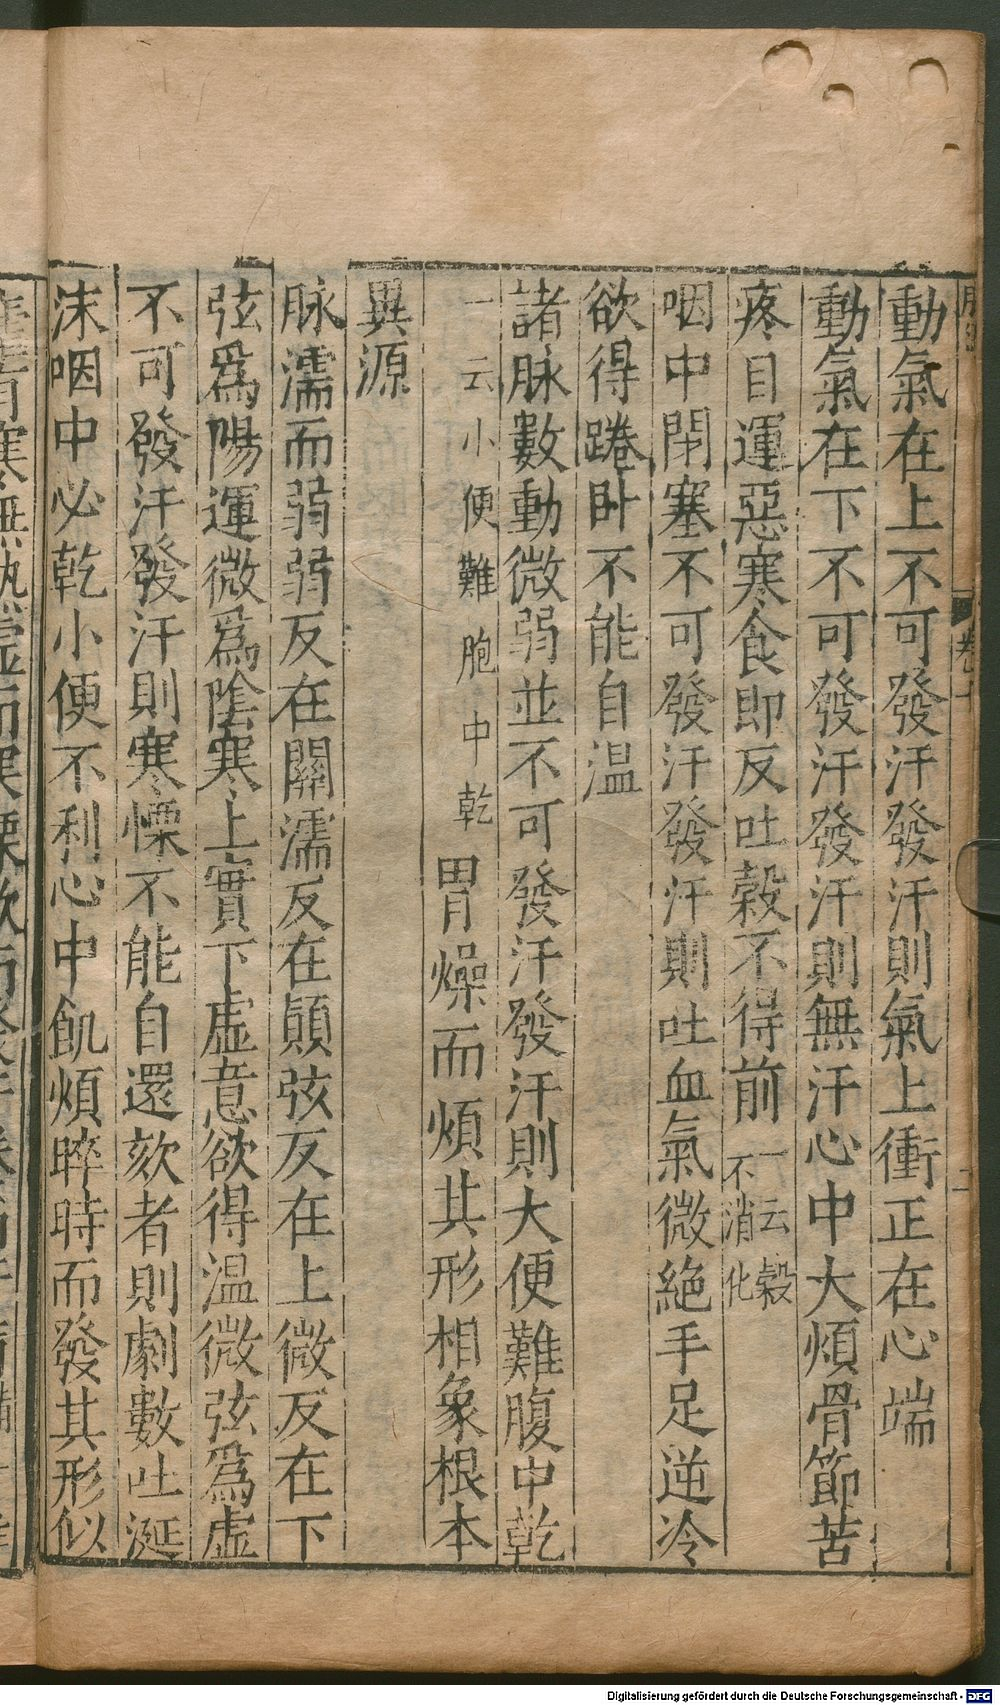 動氣在上不可發汗發汗則氣上衝正在心端
動氣在下不可發汗發汗則無汗心中大煩骨節苦
疼目運惡寒食即反吐穀不得前一云穀不消化
咽中閉塞不可發汗發汗則吐血氣微絕手足逆冷
欲得踡卧不能自温
諸脉數動微弱並不可發汗發汗則大便難腹中乾
一云小便難胞中乾胃燥而煩其形相象根本
異源
脉濡而弱弱反在關濡反在顛弦反在上微反在下
弦爲陽運微爲陰寒上實下虛意欲得温微弦爲虛
不可發汗發汗則寒慄不能自還欬者則劇數吐涎
沫咽中必乾小便不利心中飢煩晬時而發其形似
Digitalisierung gefördert durch die Deutsche Forschungsgemeinschaft - DFG